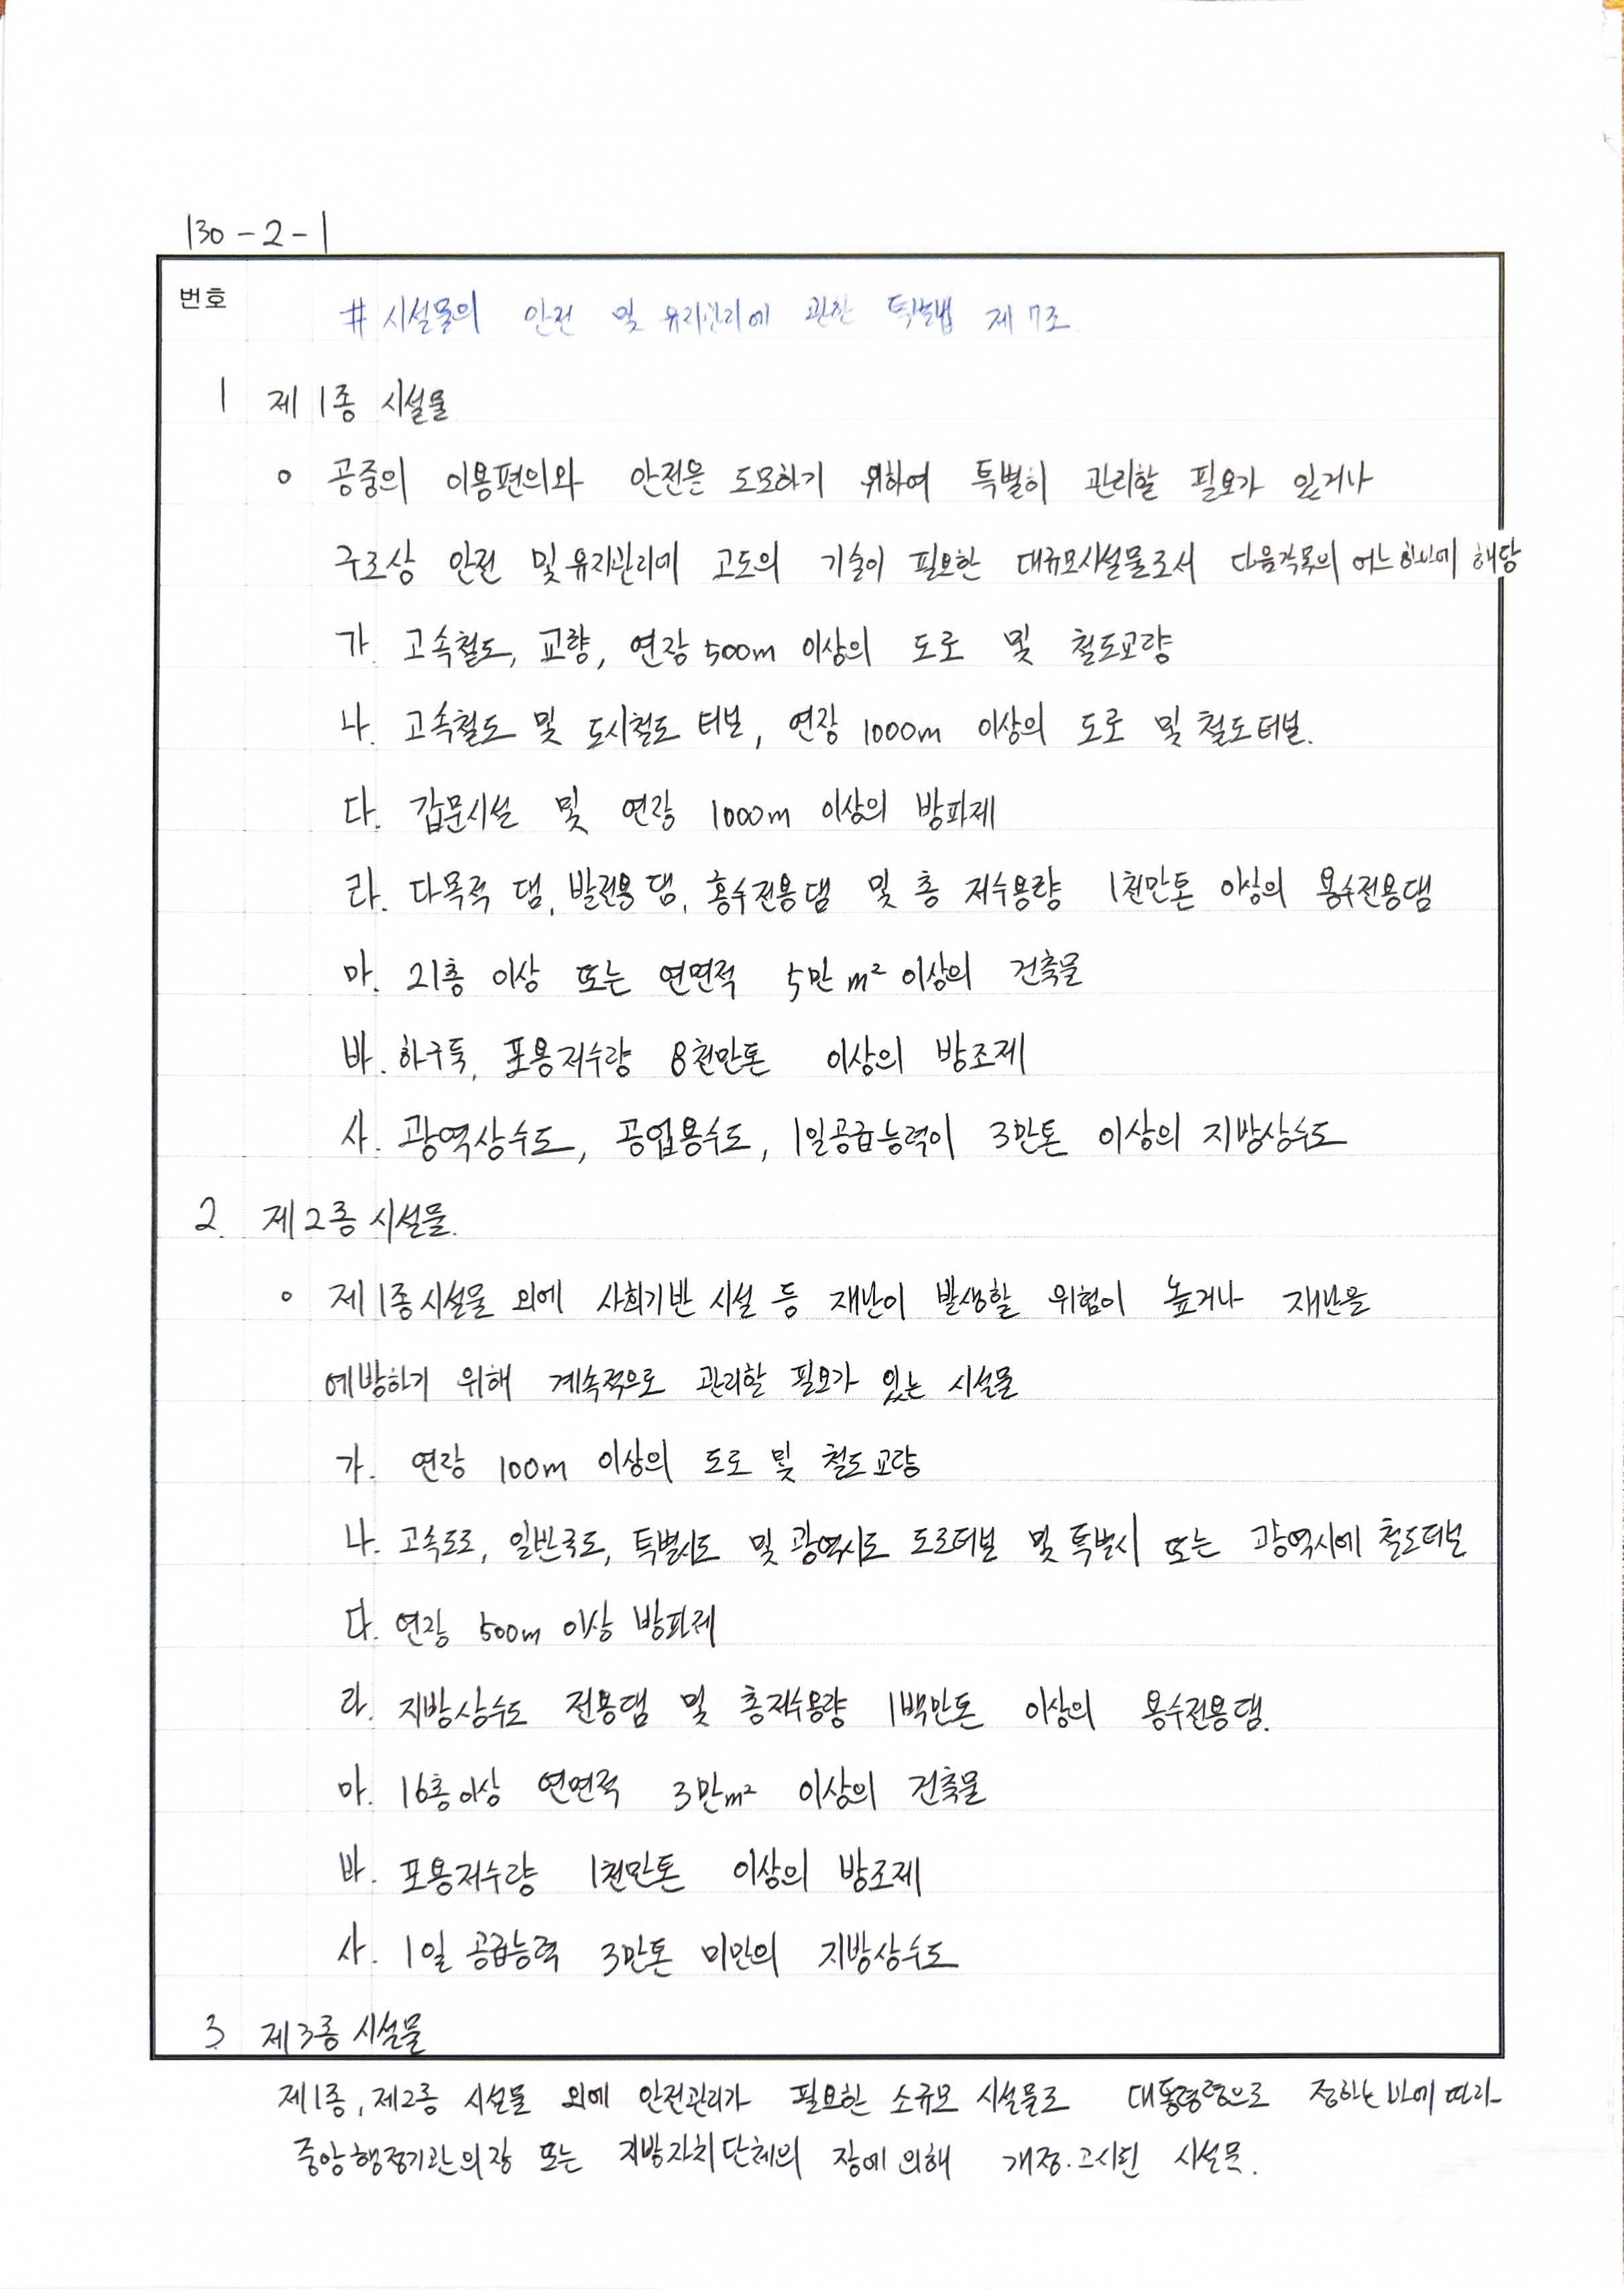 130-2-1
번호
# 시설물의 안전 및 유지관리에 관한 특별법 제7조
1 제1종 시설물
o 공중의 이용편의와 안전을 도모하기 위하여 특별히 관리할 필요가 있거나
구조상 안전 및 유지관리에 고도의 기술이 필요한 대규모시설물로서 다음각목의 어느 하나에 해당
가. 고속철도, 교량, 연장 500m 이상의 도로 및 철도교량
나. 고속철도 및 도시철도 터널, 연장 1000m 이상의 도로 및 철도터널.
다. 갑문시설 및 연장 1000m 이상의 방파제
라. 다목적 댐, 발전용 댐, 홍수전용댐 및 총 저수용량 1천만톤 이상의 용수전용댐
마. 21층 이상 또는 연면적 5만 m² 이상의 건축물
바. 하구둑, 포용저수량 8천만톤 이상의 방조제
사. 광역상수도, 공업용수도, 1일공급능력이 3만톤 이상의 지방상수도
2. 제2종 시설물.
o 제1종시설물 외에 사회기반 시설 등 재난이 발생할 위험이 높거나 재난을
예방하기 위해 계속적으로 관리할 필요가 있는 시설물
가. 연장 100m 이상의 도로 및 철도교량
나. 고속도로, 일반국도, 특별시도 및 광역시도 도로터널 및 특별시 또는 광역시에 철도터널
다. 연장 500m 이상 방파제
라. 지방상수도 전용댐 및 총저수용량 1백만톤 이상의 용수전용댐.
마. 16층이상 연면적 3만m² 이상의 건축물
바. 포용저수량 1천만톤 이상의 방조제
사. 1일 공급능력 3만톤 미만의 지방상수도
3. 제3종 시설물
제1종, 제2종 시설물 외에 안전관리가 필요한 소규모 시설물로 대통령령으로 정하는 바에 따라
중앙행정기관의장 또는 지방자치단체의 장에 의해 개정.고시된 시설물.